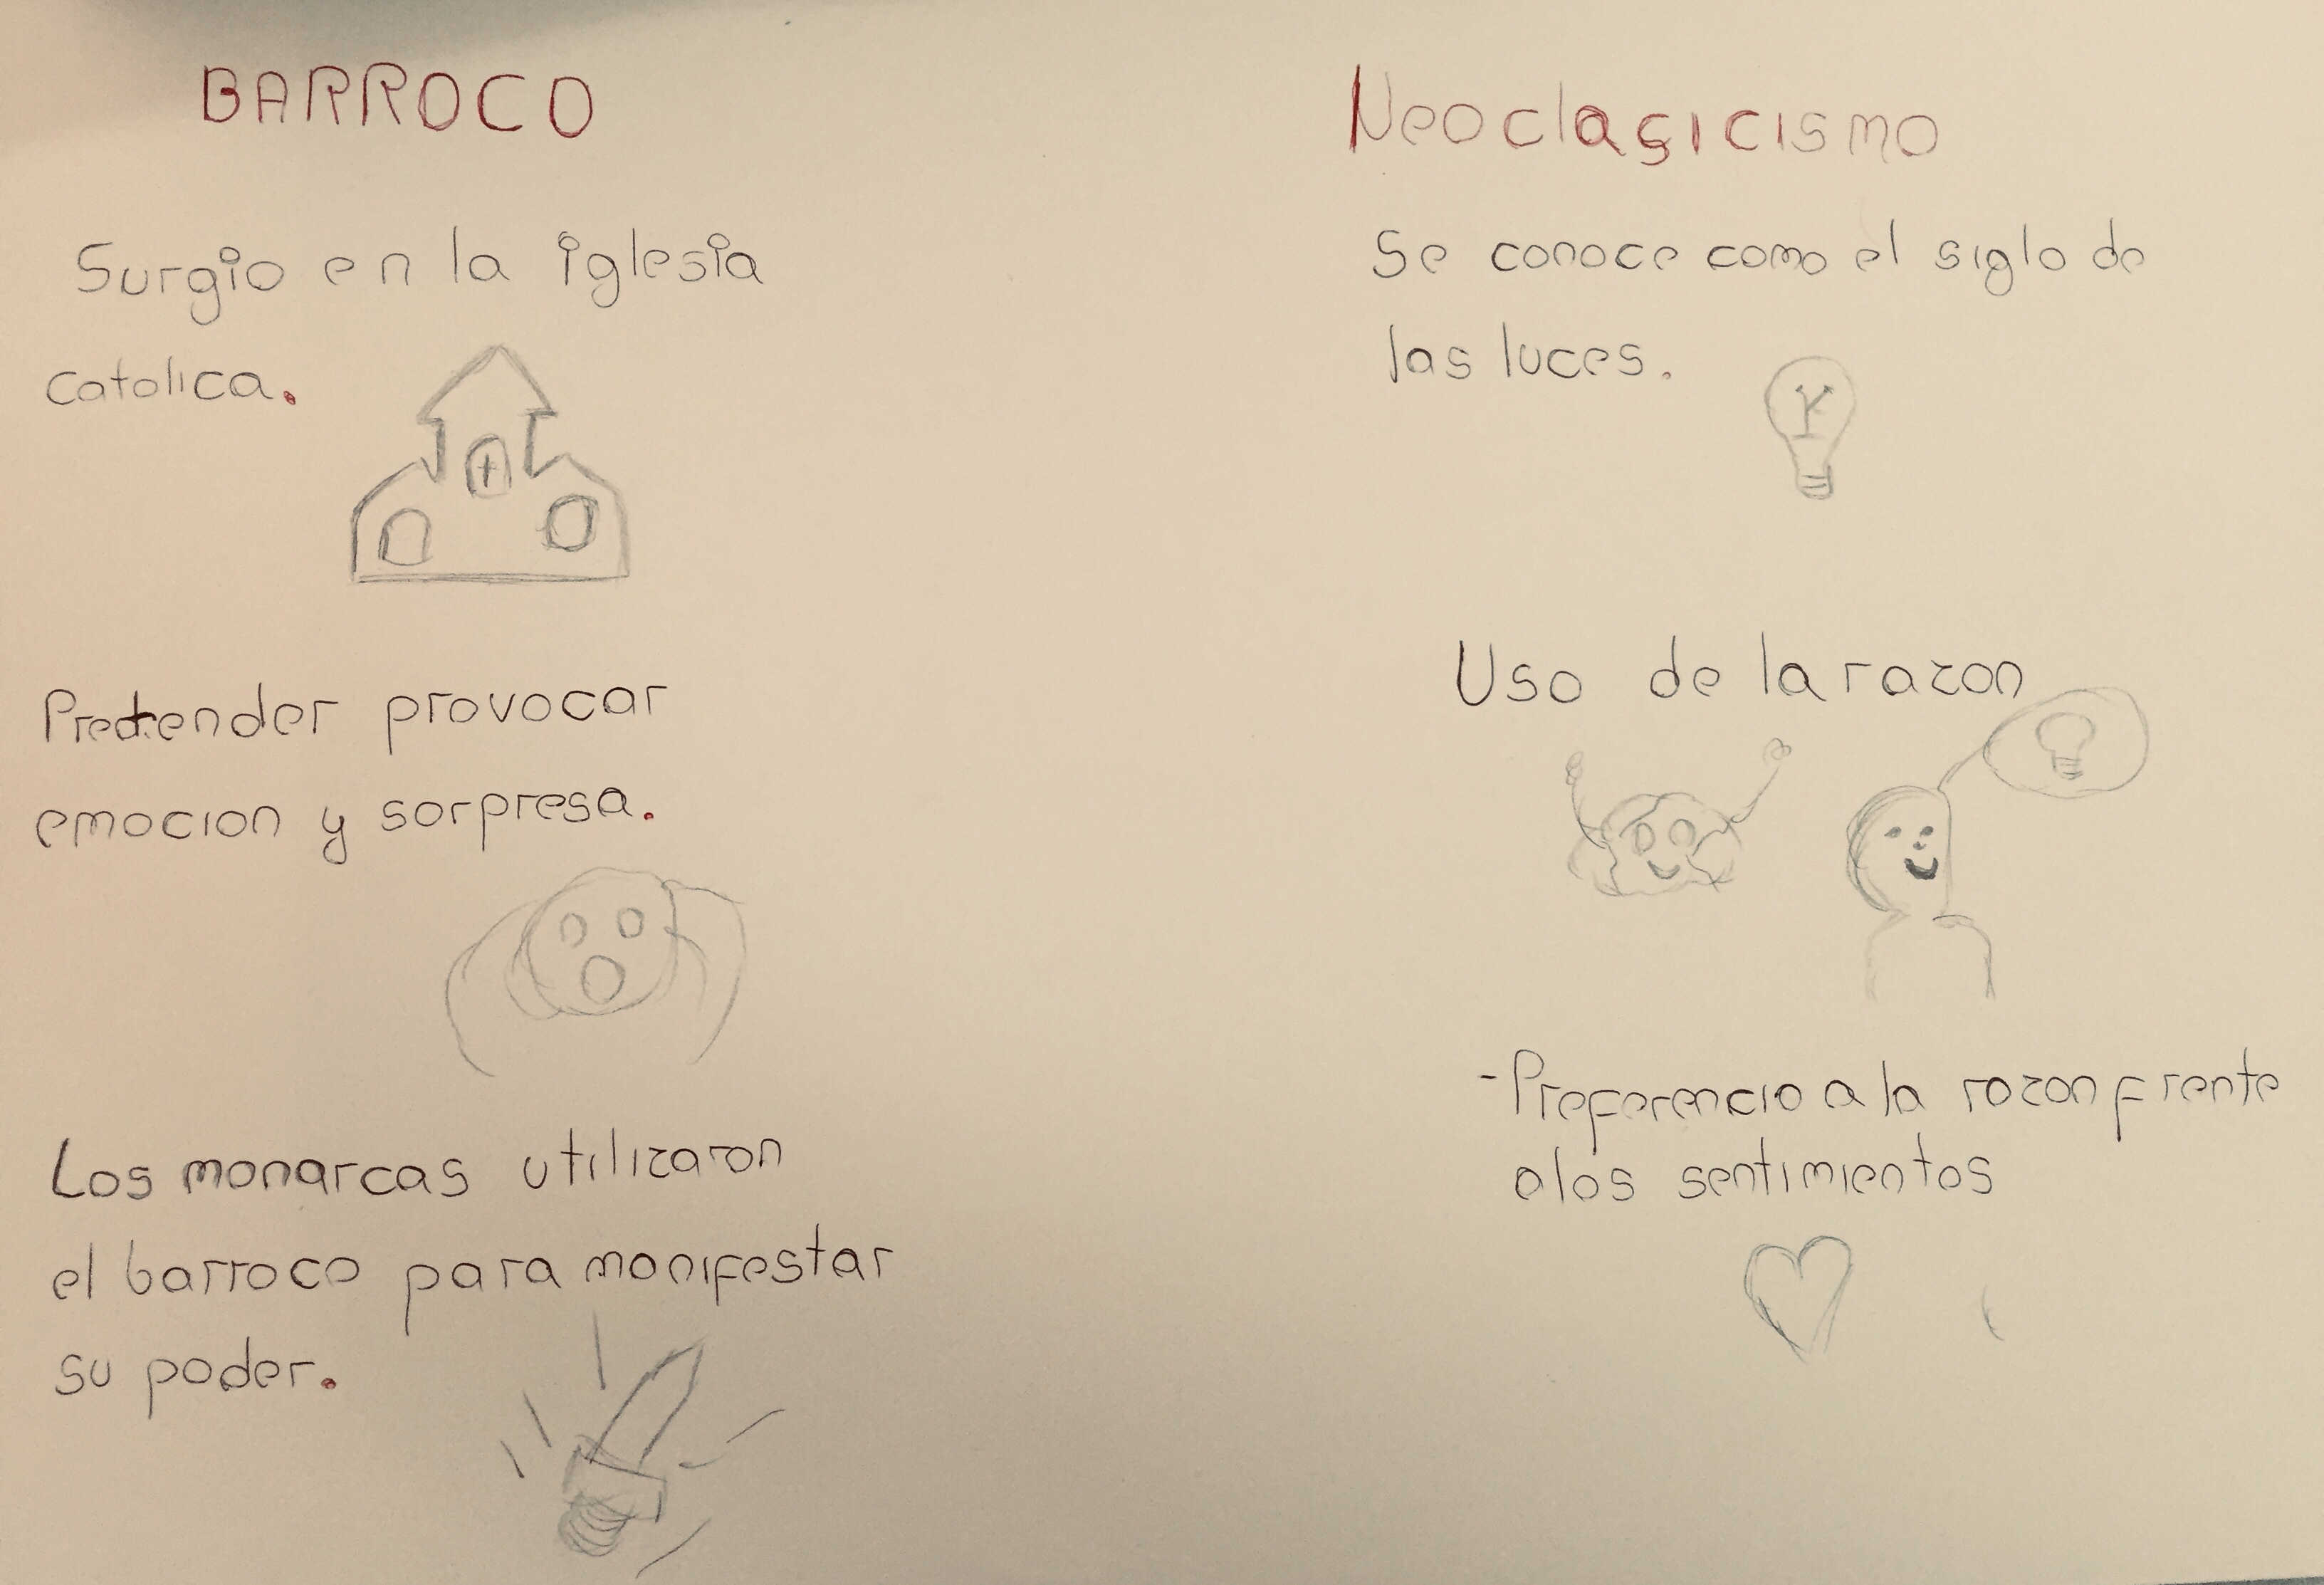 BARROCO
Surgio en la iglesia
catolica.
Pretender provocar
emocion y sorpresa.
Los monarcas utilizaron
el barroco para manifestar
su poder.
Neoclasicismo
Se conoce como el siglo de
las luces.
Uso de la razon
-Preferencia a la razon frente
a los sentimientos